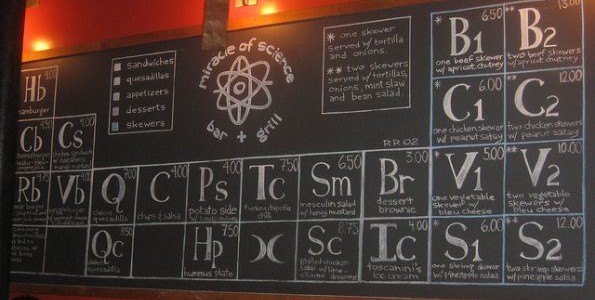 miracle of science
bar + grill
sandwiches
quesadillas
appetizers
desserts
skewers
* one skewer
served w/ tortilla
and onions.
** two skewers
served w/ tortillas,
onions, mint slaw
and bean salad.
RR02
Hb
hamburger
* 6.50
B1
one beef skewer
w/ apricot chutney
** 13.00
B2
two beef skewers
w/ apricot chutney
Cb
Cs
* 6.00
C1
one chicken skewer
w/ peanut satay
** 12.00
C2
two chicken skewers
w/ peanut satay
Rb
Vb
Q
quesadilla
4.00
C
chips & salsa
4.00
Ps
potato side
7.50
Tc
turkey chipotle
chili
6.50
Sm
mesculin salad
w/ honey mustard
3.00
Br
dessert
brownie
* 5.00
V1
one vegetable
skewer w/
bleu cheese
** 10.00
V2
two vegetable
skewers w/
bleu cheese
Qc
quesadilla
7.50
Hp
hummus plate
8.75
Sc
4.00
Ic
toscanini's
ice cream
* 6.00
S1
one shrimp skewer
w/ pineapple salsa
** 12.00
S2
two shrimp skewers
w/ pineapple salsa